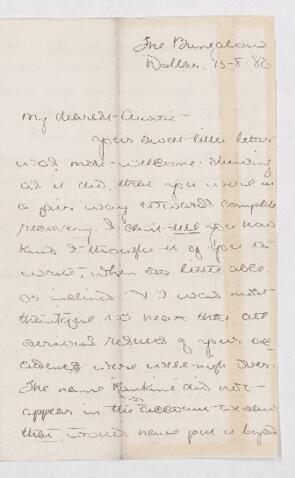 The Bungalow
Dollar. 13-8-86
My dearest Auntie
Your sweet little letter
was most welcome. Showing
as it did, that you were in
a fair way towards complete
recovery. I can't tell you how
kind I thought it of you to
write, when so little able
or inclined & I was most
thankful to hear that all
serious results of your ac
cident were well-nigh over.
The name Rankine did not
appear in the account
that would never put us beyond